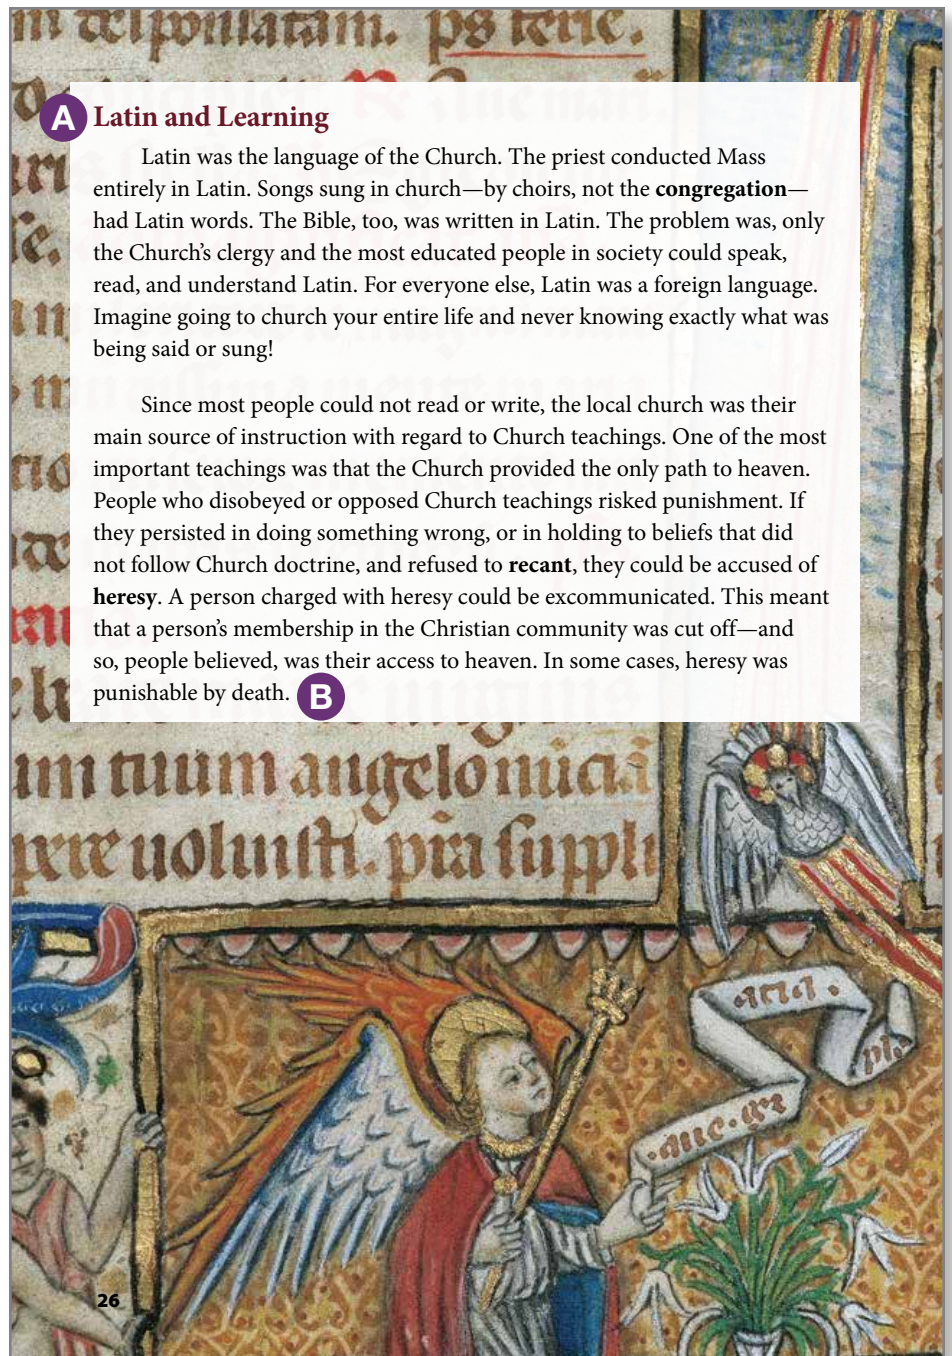 ps terie.
A Latin and Learning
Latin was the language of the Church. The priest conducted Mass
entirely in Latin. Songs sung in church—by choirs, not the congregation—
had Latin words. The Bible, too, was written in Latin. The problem was, only
the Church’s clergy and the most educated people in society could speak,
read, and understand Latin. For everyone else, Latin was a foreign language.
Imagine going to church your entire life and never knowing exactly what was
being said or sung!
Since most people could not read or write, the local church was their
main source of instruction with regard to Church teachings. One of the most
important teachings was that the Church provided the only path to heaven.
People who disobeyed or opposed Church teachings risked punishment. If
they persisted in doing something wrong, or in holding to beliefs that did
not follow Church doctrine, and refused to recant, they could be accused of
heresy. A person charged with heresy could be excommunicated. This meant
that a person’s membership in the Christian community was cut off—and
so, people believed, was their access to heaven. In some cases, heresy was
punishable by death. B
um tuum angelo nūciā
voluisti. pr̄a suppli
26